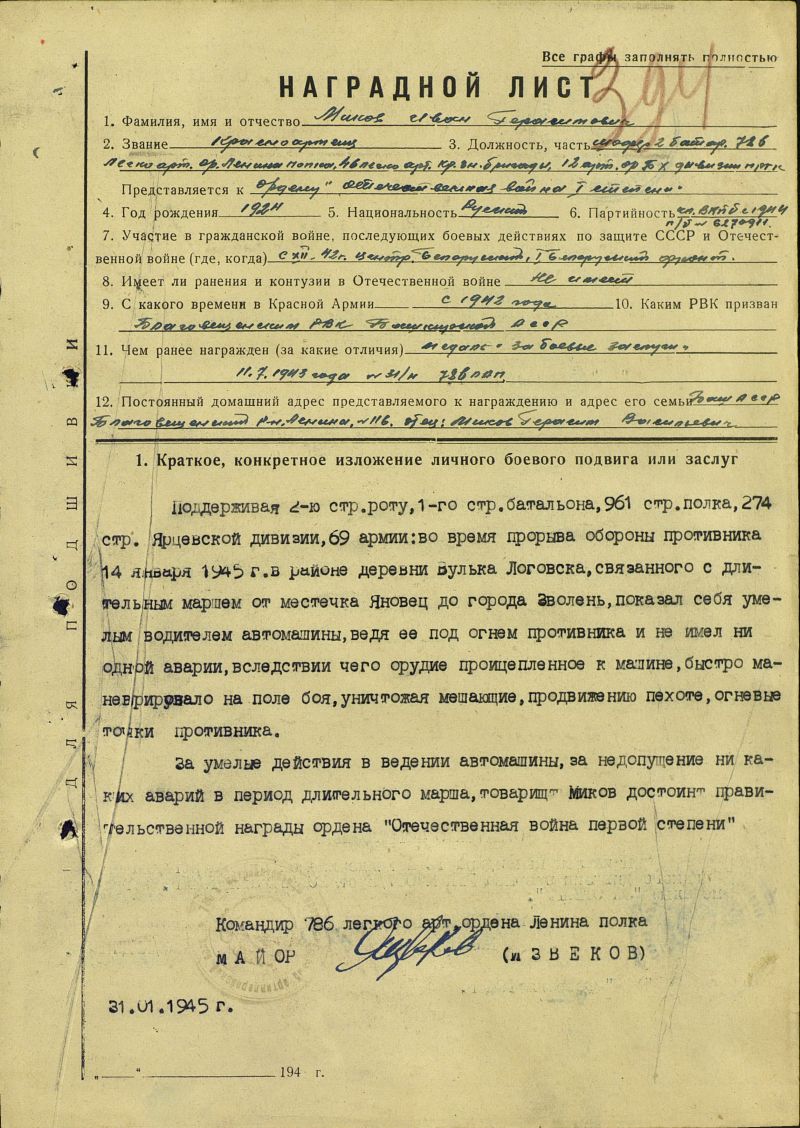 Все графы заполнять полностью
394
НАГРАДНОЙ ЛИСТ
1. Фамилия, имя и отчество Миков Иван Герасимович
2. Звание Красноармеец 3. Должность, часть шофер 2 батар. 786
легко арт. ор. Ленина полка, 46 легко арт. бригады, 12 арт. дивизии РГК
Представляется к ордену "Отечественная война I степени"
4. Год рождения 1924 5. Национальность Русский 6. Партийность чл. ВКП(б) с 1944
п/б № 6270911
7. Участие в гражданской войне, последующих боевых действиях по защите СССР и Отечест-
венной войне (где, когда) с XII-42г. Центр. Белорусский, I Белорусский фронт.
8. Имеет ли ранения и контузии в Отечественной войне не имеет
9. С какого времени в Красной Армии с 1942 года 10. Каким РВК призван
Благовещенским РВК Башкирской АССР
11. Чем ранее награжден (за какие отличия) медаль "За боевые заслуги"
11.7.1943 года № 31/н 786 лап
12. Постоянный домашний адрес представляемого к награждению и адрес его семьи Баш АССР
Благовещенский р-н. Ленина, № 116. Отец: Миков Герасим Васильевич
1. Краткое, конкретное изложение личного боевого подвига или заслуг
Поддерживая 2-ю стр.роту,1-го стр.батальона,961 стр.полка,274
стр. Ярцевской дивизии,69 армии:во время прорыва обороны противника
14 января 1945 г.в районе деревни Вулька Логовска,связанного с дли-
тельным маршем от местечка Яновец до города Зволень,показал себя уме-
лым водителем автомашины,ведя ее под огнем противника и не имел ни
одной аварии,вследствии чего орудие проицепленное к машине,быстро ма-
неврирувало на поле боя,уничтожая мешающие,продвижению пехоте,огневые
точки противника.
За умелые действия в ведении автомашины,за недопущение ни ка-
ких аварий в период длительного марша,товарищт Миков достоинт прави-
тельственной награды ордена "Отечественная война первой степени"
Командир 786 легкого арт.ордена Ленина полка
МАЙОР (ИЗВЕКОВ)
31.01.1945 г.
„ “ 194 г.
ДЛЯ ПОДШИВКИ